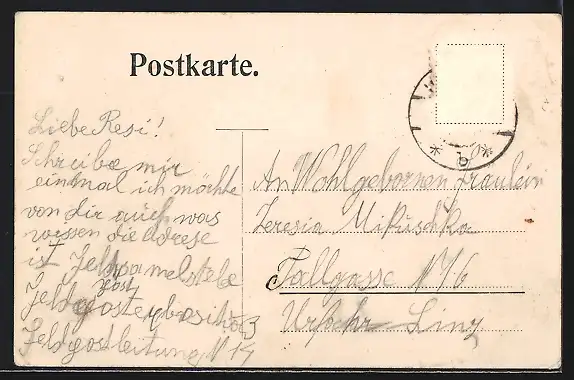 Postkarte.
Liebe Resi!
Schreibe mir
einmal ich möchte
von dir auch was
wissen die Adrese
ist Feldsamelstele
Feldpost
Feldpostleitung N 14
An Wohlgebornen Fräulein
Teresia Mikuschka
Fallgasse N 6
Urfahr Linz
* b *